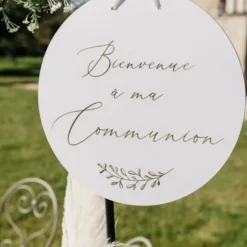 Bienvenue
à ma
Communion